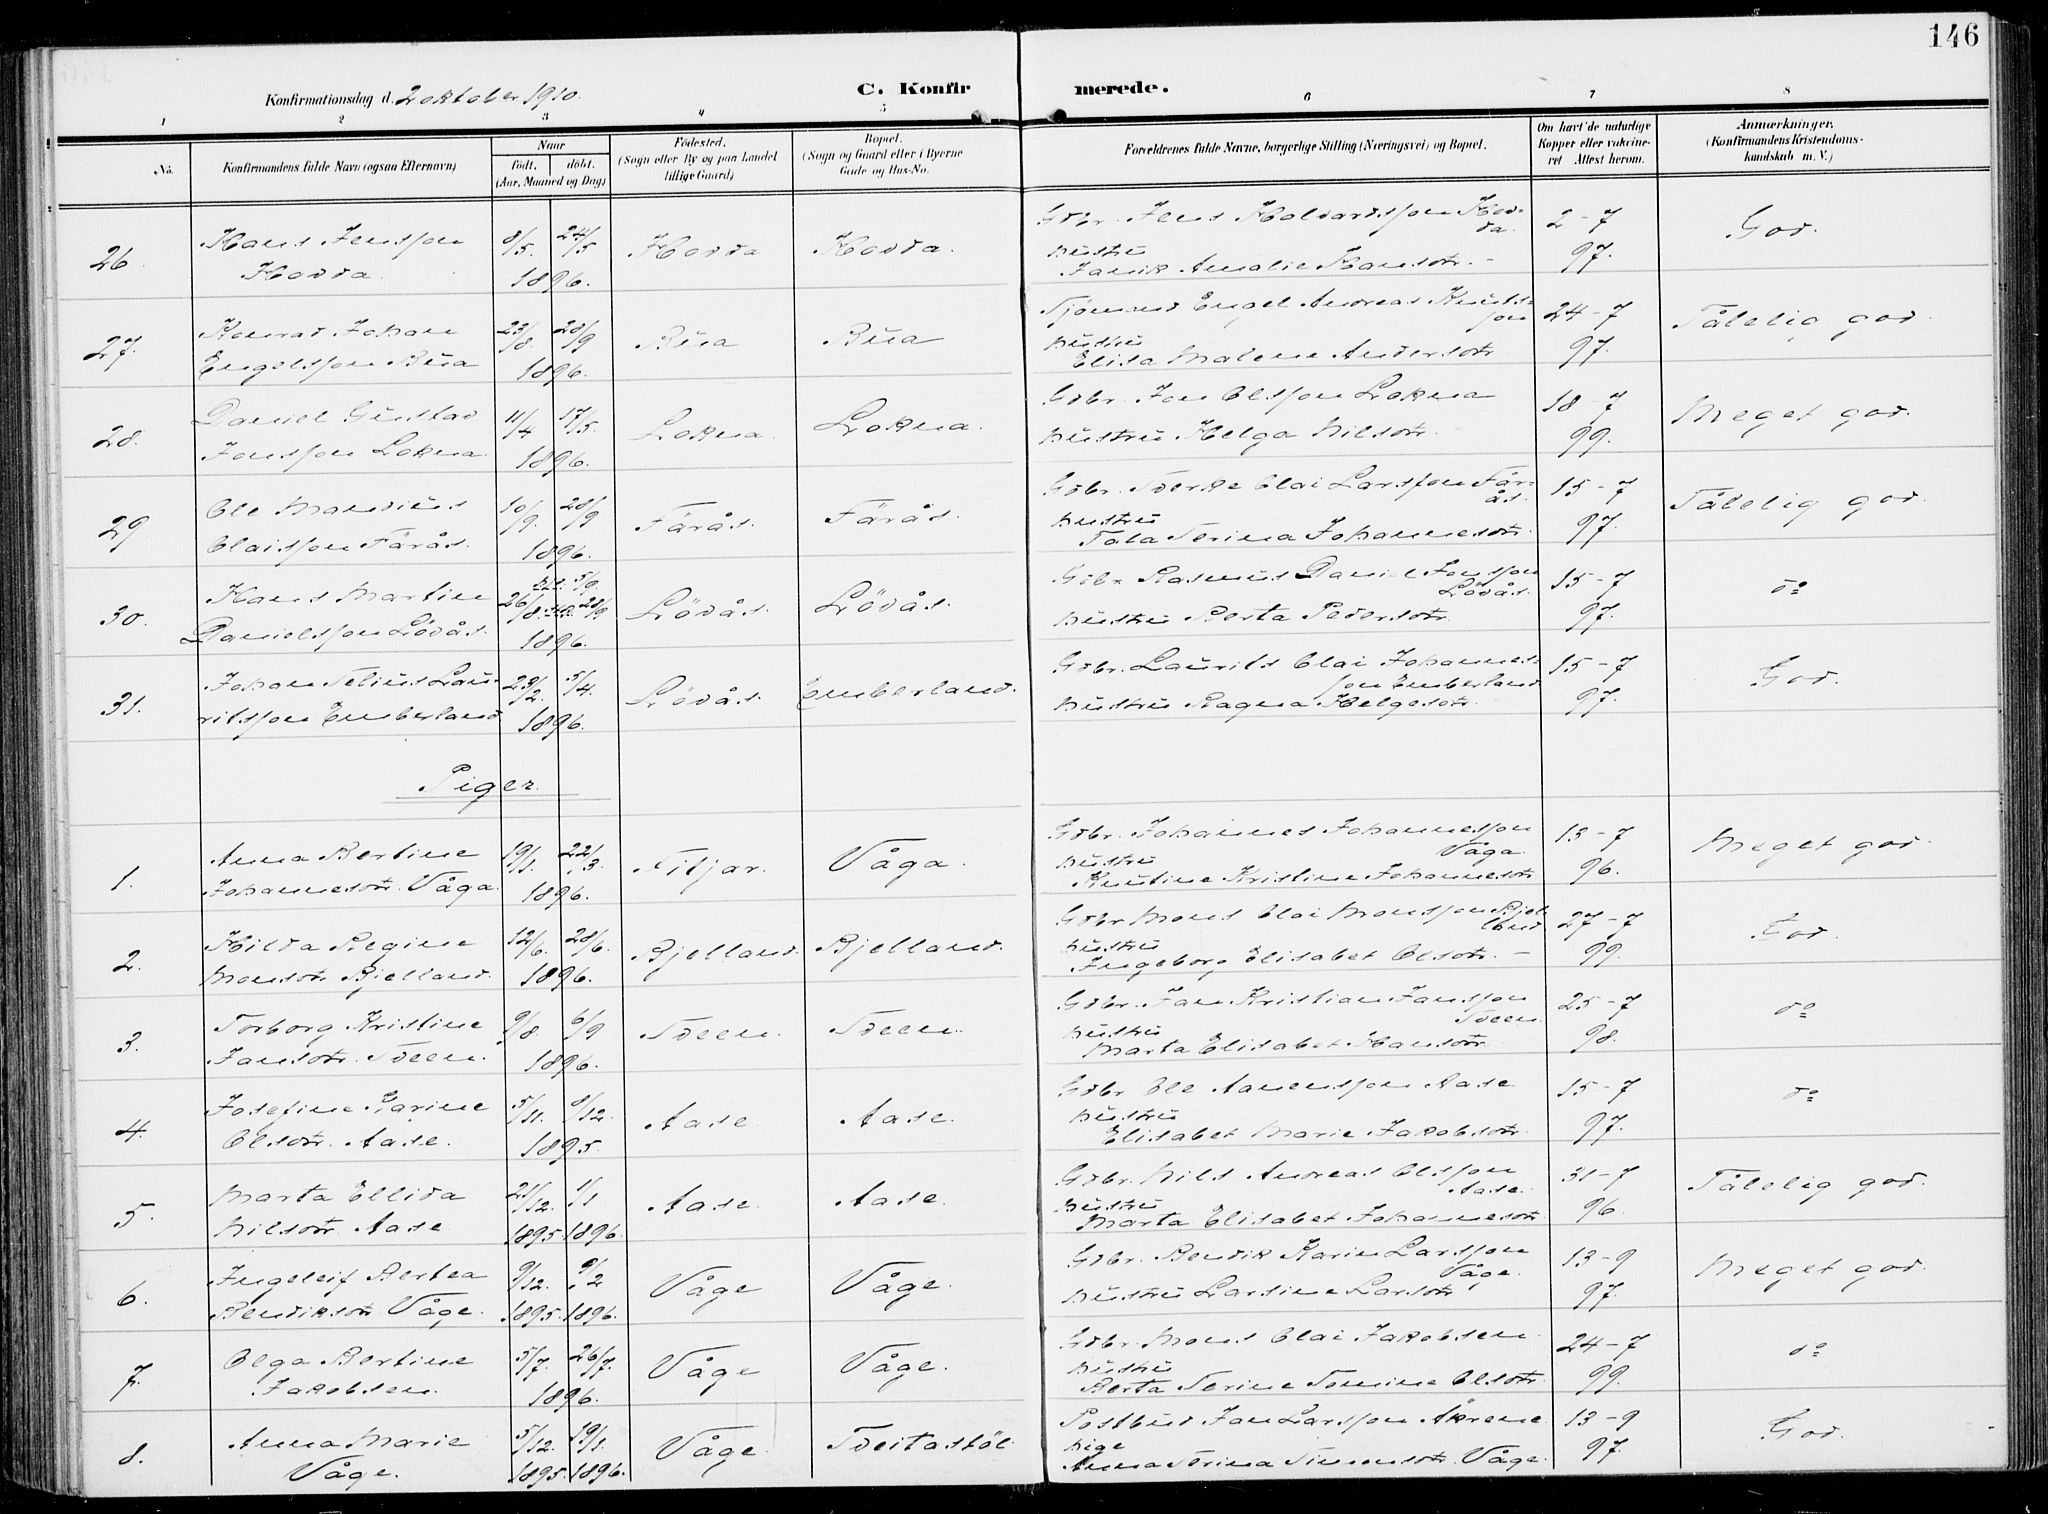 146
Konfirmationsdag d. 2 oktober 1910.
C. Konfirmerede.
1 2 3 4 5 6 7 8
No.
Konfirmandens fulde Navn (ogsaa Efternavn)
Naar
født. døbt.
(Aar, Maaned og Dag)
Fødested.
(Sogn eller By og paa Landet
tillige Gaard)
Bopæl.
(Sogn og Gaard eller i Byerne
Gade og Hus-No.
Forældrenes fulde Navne, borgerlige Stilling (Næringsvei) og Bopæl.
Om havt de naturlige
Kopper eller vakcine-
ret Attest herom.
Anmærkninger.
(Konfirmandens Kristendoms-
kundskab m. V.)
26. Hans Jensson Hovda. 8/5. 24/5 1896. Hovda Hovda. Gdbr. Jens Halvardsson Hovda. hustru Amalie Hansdtr. 2-7 97. God.
27. Konrad Johan Engelsson Búa 23/8. 20/9 1896. Búa Búa Sjømand Engel Andreas Knutsson hustru Elisa Malene Andersdtr. 24-7 97. Tålelig god.
28. Daniel Gustav Jonsson Lokna 11/4 17/5. 1896. Lokna. Lokna. Gdbr. Jon Olsson Lokna hustru Helga Nilsdtr. 18-7 99. Meget god.
29. Ole Mandius Olaisson Färås. 10/9. 20/9 1896. Färås. Färås. Gdbr. Sverke Olai Larsson Färås. hustru Tala Serina Johannesdtr. 15-7 97. Tålelig god.
30. Hans Martin Danielsson Lödås. 26/8. 5/9. 20/9 1896. Lödås. Lödås. Gdbr. Rasmus Daniel Jonsson Lödås. hustru Berta Pedersdtr. 15-7 97. do
31. Johan Selius Lauritsson Emberland 23/2. 5/4. 1896. Lödås. Emberland. Gdbr. Laurits Olai Johannesson Emberland hustru Ragna Helgesdtr. 15-7 97. God.
Piger.
1. Anna Bertine Johannesdtr. Våga. 19/1. 22/3. 1896. Fitjar. Våga. Gdbr. Johannes Johannesson Våga. hustru Knutine Kristine Johannesdtr. 13-7 96. Meget god.
2. Hilda Regine Monsdtr. Bjelland. 12/6. 28/6. 1896. Bjelland. Bjelland. Gdbr. Mons Olai Monsson Bjelland hustru Ingeborg Elisabet Olsdtr. 27-7 99. God.
3. Torborg Kristine Jansdtr. Tveen. 9/8. 6/9 1896. Tveen. Tveen. Gdbr. Jan Kristian Jansson Tveen hustru Marta Elisabet Hansdtr. 25-7 98. do
4. Josefine Karine Olsdtr. Aase. 5/11. 8/12. 1895. Aase. Aase. Gdbr. Ole Aamensson Aase. hustru Elisabet Marie Jakobsdtr. 15-7 97. do
5. Marta Ellida Nilsdtr. Aase 21/12. 1/1 1895. 1896. Aase. Aase. Gdbr. Nils Andreas Olsson Aase. hustru Marta Elisabet Johannesdtr. 31-7 96. Tålelig god.
6. Ingeleif Bertea Bendiksdtr. Våge. 9/12. 9/2 1895. 1896. Våge Våge. Gdbr. Bendik Karin Larsson Våge. hustru Larsine Larsdtr. 13-9 97. Meget god.
7. Olga Bertine Jakobsen. 5/7. 26/7. 1896. Våge Våge. Gdbr. Mons Olai Jakobsen. hustru Berta Serine Tomine Olsdtr. 24-7 99. do
8. Anna Marie Våge. 5/12. 19/1. 1895. 1896. Våge Tveitastöl. Postbud Jan Larsson Åkrene. Pige Anna Serina Simonsdtr. Våge. 13-9 97. God.